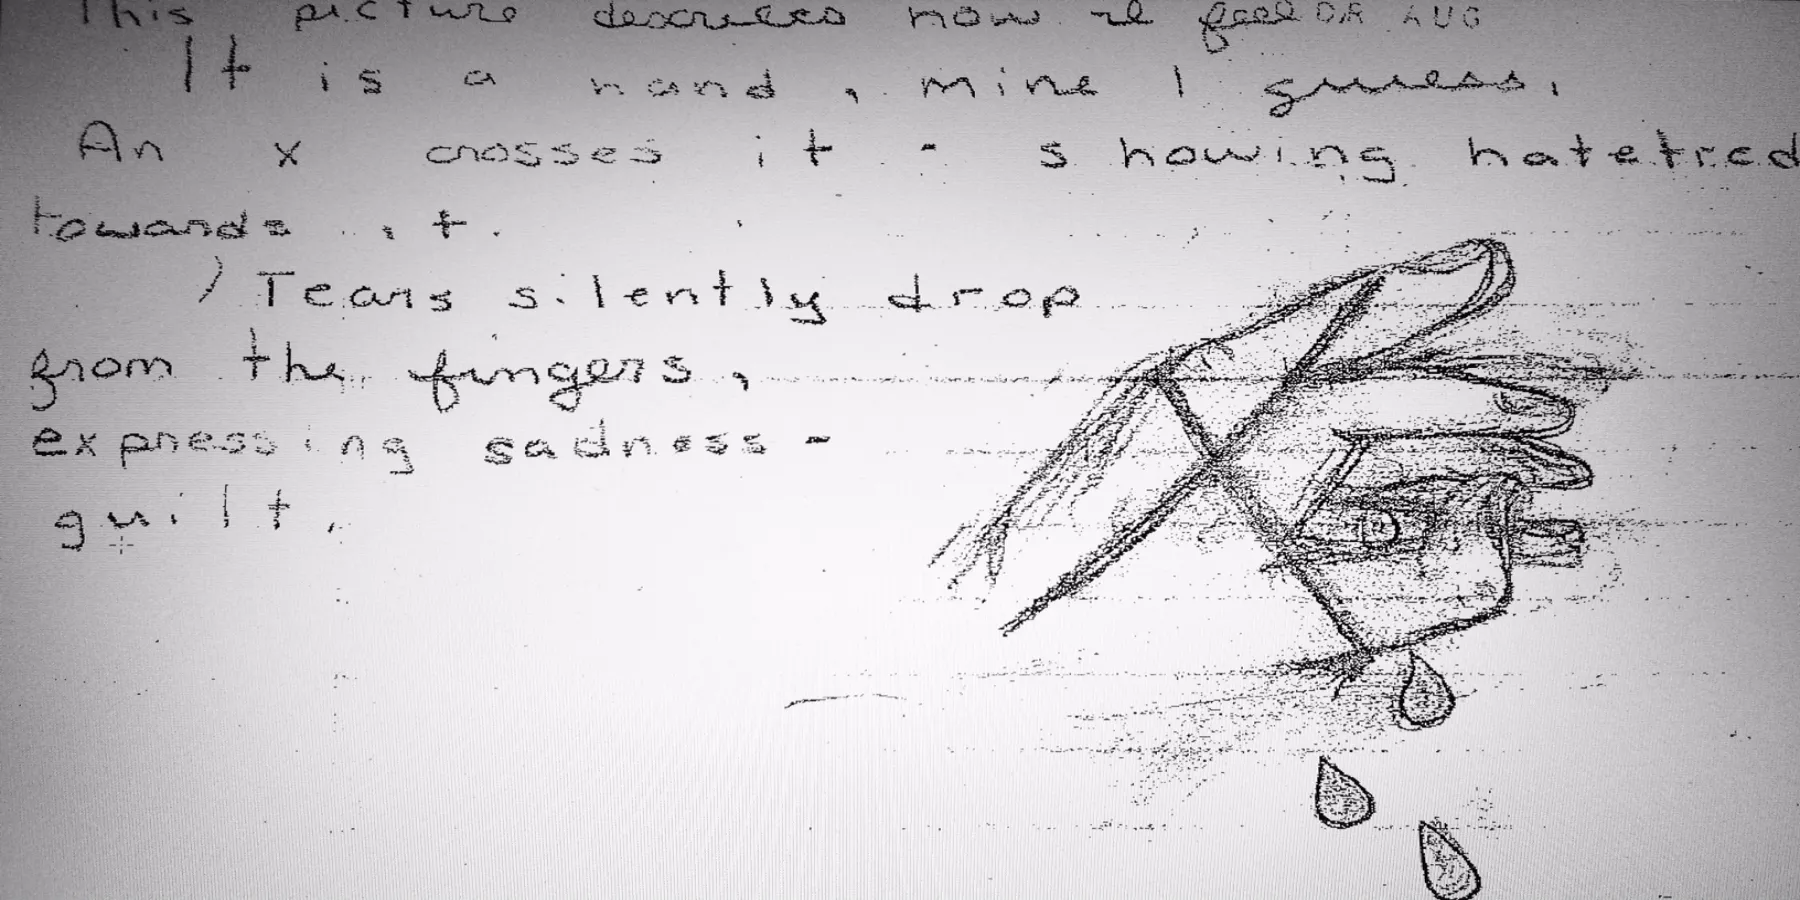 This picture describes how I feel DR AUG
It is a hand, mine I guess.
An x crosses it - showing hatetred
towards it.
Tears silently drop
from the fingers,
expressing sadness -
guilt.